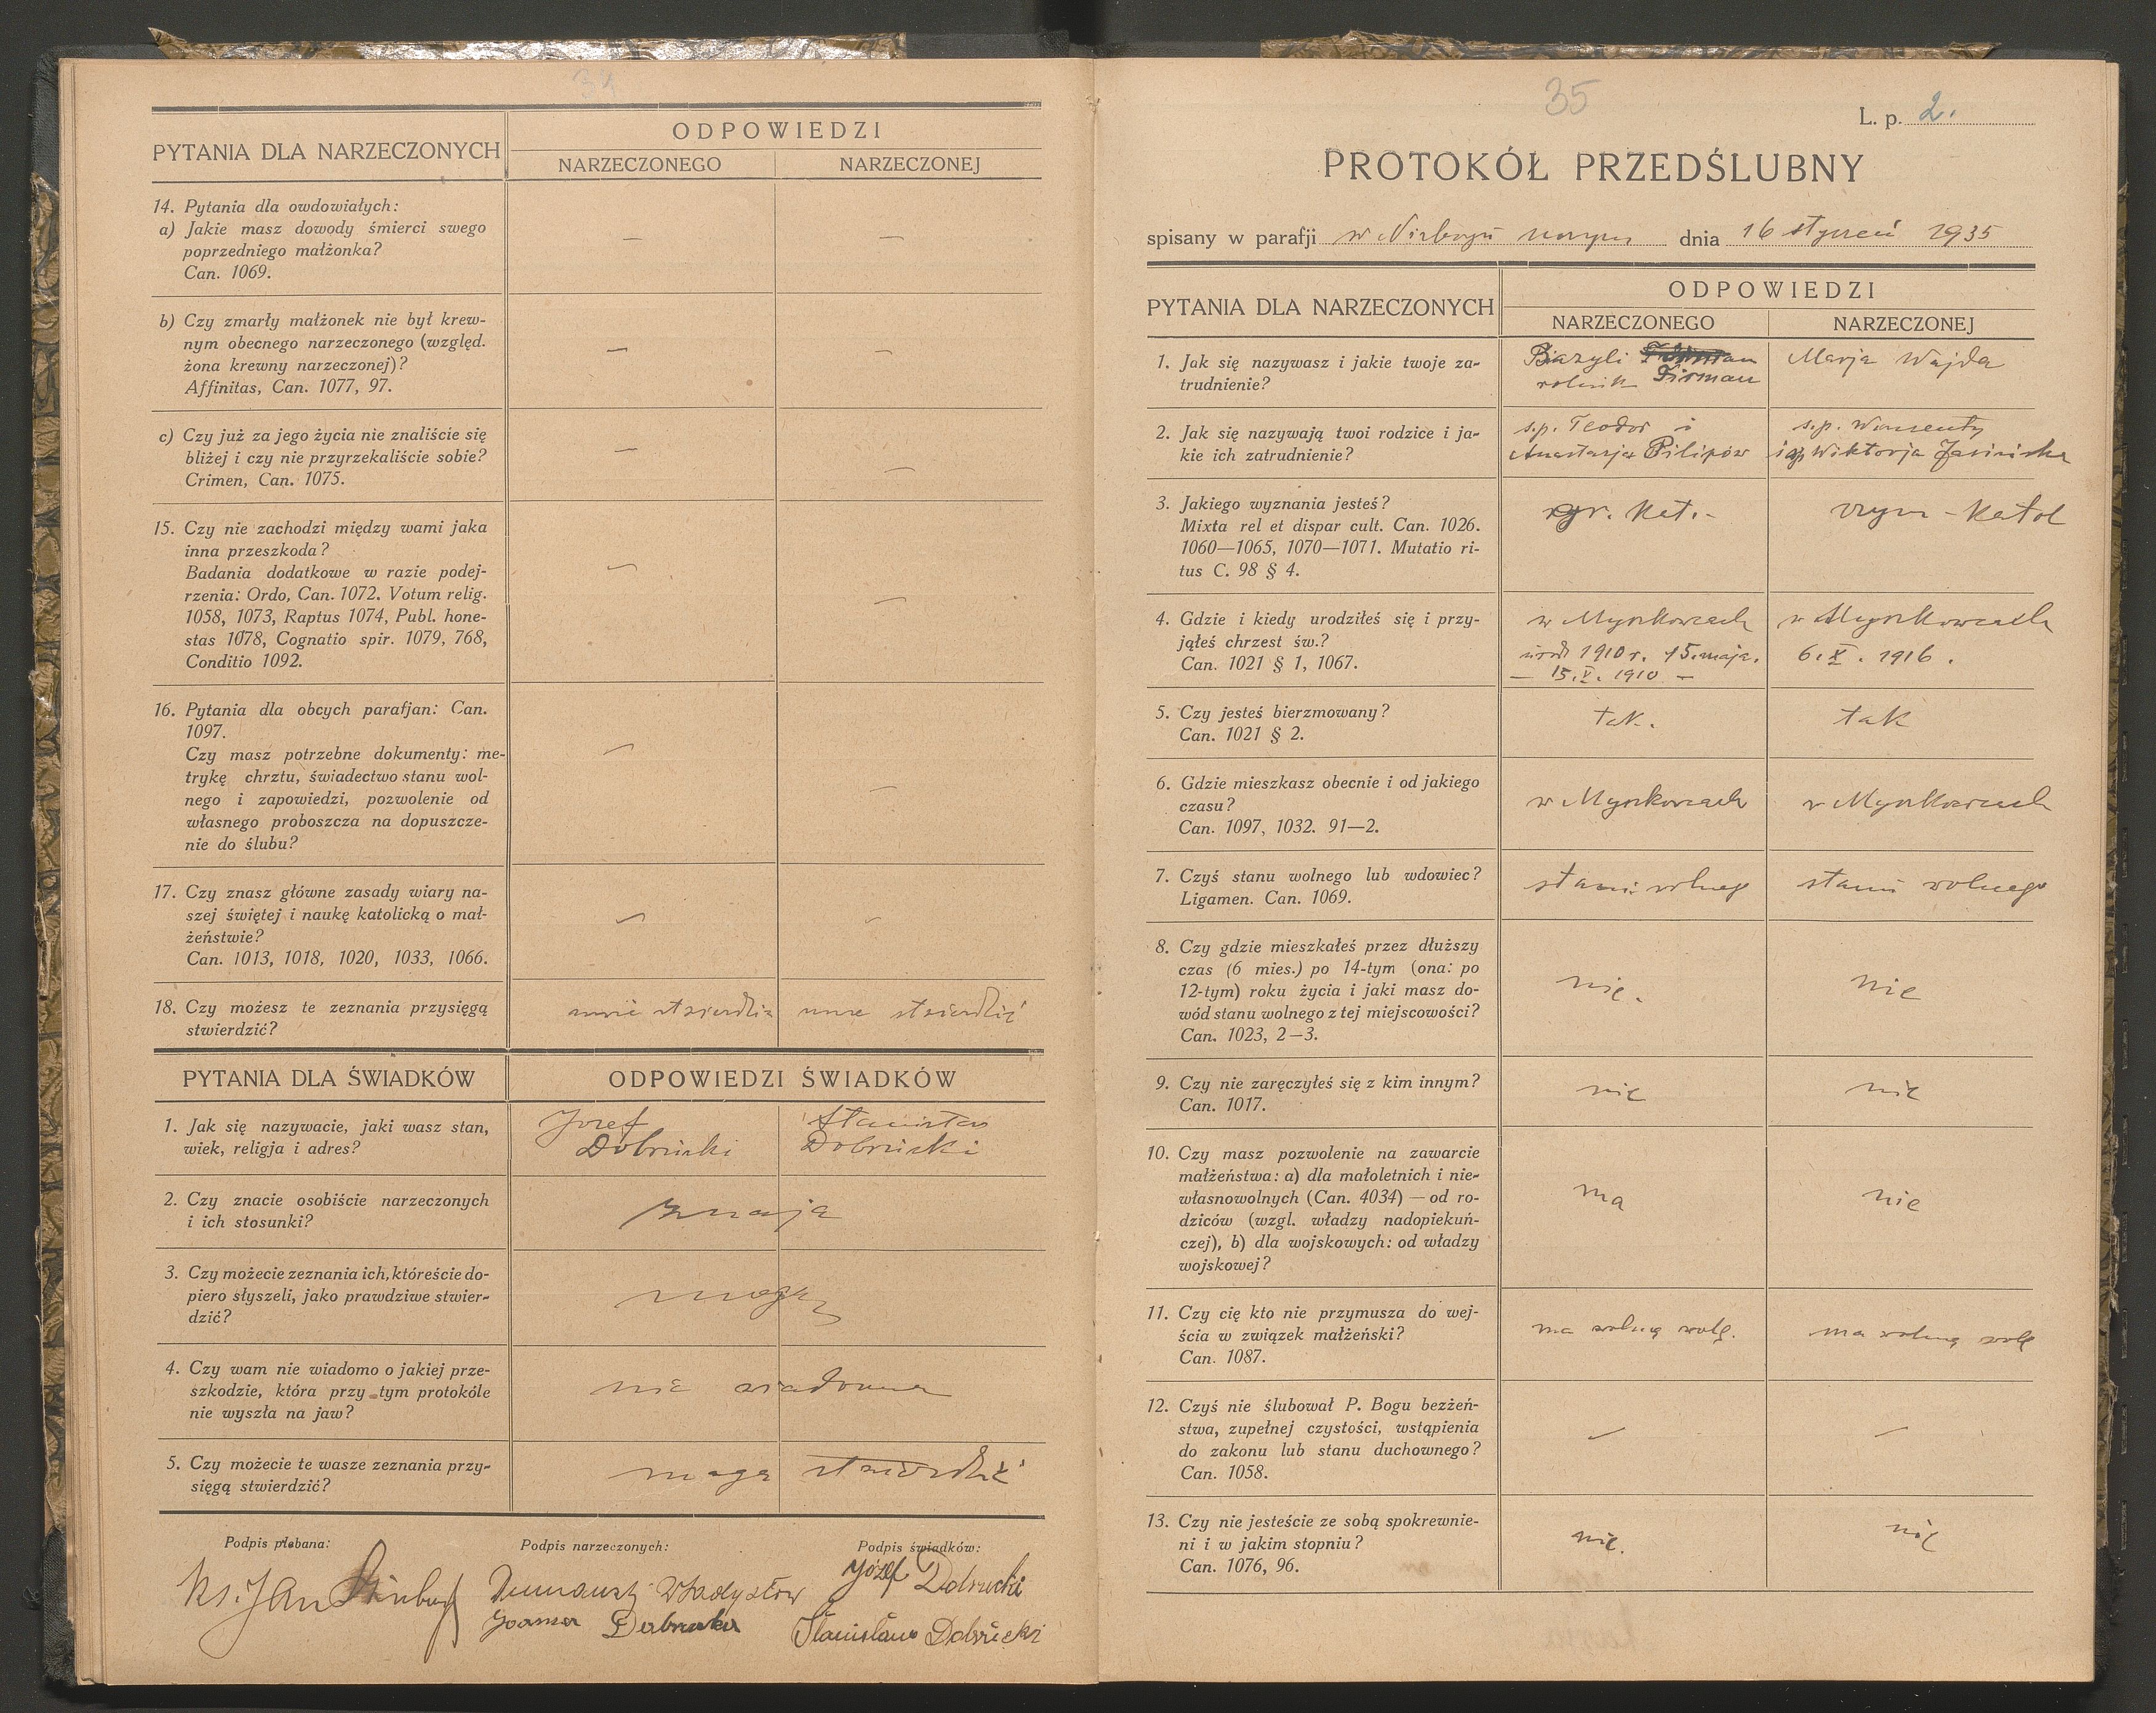 34
PYTANIA DLA NARZECZONYCH
ODPOWIEDZI
NARZECZONEGO NARZECZONEJ
14. Pytania dla owdowiałych:
a) Jakie masz dowody śmierci swego
poprzedniego małżonka?
Can. 1069.
— —
b) Czy zmarły małżonek nie był krew-
nym obecnego narzeczonego (względ.
żona krewny narzeczonej)?
Affinitas, Can. 1077, 97.
— —
c) Czy już za jego życia nie znaliście się
bliżej i czy nie przyrzekaliście sobie?
Crimen, Can. 1075.
— —
15. Czy nie zachodzi między wami jaka
inna przeszkoda?
Badania dodatkowe w razie podej-
rzenia: Ordo, Can. 1072. Votum relig.
1058, 1073, Raptus 1074, Publ. hone-
stas 1078, Cognatio spir. 1079, 768,
Conditio 1092.
— —
16. Pytania dla obcych parafjan: Can.
1097.
Czy masz potrzebne dokumenty: me-
trykę chrztu, świadectwo stanu wol-
nego i zapowiedzi, pozwolenie od
własnego proboszcza na dopuszcze-
nie do ślubu?
— —
17. Czy znasz główne zasady wiary na-
szej świętej i naukę katolicką o mał-
żeństwie?
Can. 1013, 1018, 1020, 1033, 1066.
— —
18. Czy możesz te zeznania przysięgą
stwierdzić?
stwierdzić stwierdzić
PYTANIA DLA ŚWIADKÓW
ODPOWIEDZI ŚWIADKÓW
1. Jak się nazywacie, jaki wasz stan,
wiek, religja i adres?
Jozef Stanisław
Dobrucki Dobrucki
2. Czy znacie osobiście narzeczonych
i ich stosunki?
znają
3. Czy możecie zeznania ich, któreście do-
piero słyszeli, jako prawdziwe stwier-
dzić?
mogą
4. Czy wam nie wiadomo o jakiej prze-
szkodzie, która przy tym protokóle
nie wyszła na jaw?
nie wiadomo
5. Czy możecie te wasze zeznania przy-
sięgą stwierdzić?
mogą stwierdzić
Podpis plebana: Podpis narzeczonych: Podpis świadków:
Ks. Jan
Władysłów
Józef Dobrucki
Joanna Dobrucka
Stanisław Dobrucki
35
L. p. 2.
PROTOKÓŁ PRZEDŚLUBNY
spisany w parafji w Niżborgu nowym dnia 16 styczeń 1935
PYTANIA DLA NARZECZONYCH
ODPOWIEDZI
NARZECZONEGO NARZECZONEJ
1. Jak się nazywasz i jakie twoje za-
trudnienie?
Bazyli
rolnik Firman
Marja Wajda
2. Jak się nazywają twoi rodzice i ja-
kie ich zatrudnienie?
s.p. Teodor i
Anastazja Pilipów
s.p. Wincenty
i Wiktorja Jasińska
3. Jakiego wyznania jesteś?
Mixta rel et dispar cult. Can. 1026.
1060—1065, 1070—1071. Mutatio ri-
tus C. 98 § 4.
gr. kat. -
rzym - katol
4. Gdzie i kiedy urodziłeś się i przy-
jąłeś chrzest św.?
Can. 1021 § 1, 1067.
w Myszkowcach
urodz 1910 r. 15. maja.
— 15. V. 1910 —
w Myszkowcach
6. X. 1916.
5. Czy jesteś bierzmowany?
Can. 1021 § 2.
tak. tak
6. Gdzie mieszkasz obecnie i od jakiego
czasu?
Can. 1097, 1032. 91—2.
w Myszkowcach w Myszkowcach
7. Czyś stanu wolnego lub wdowiec?
Ligamen. Can. 1069.
stanu wolnego stanu wolnego
8. Czy gdzie mieszkałeś przez dłuższy
czas (6 mies.) po 14-tym (ona: po
12-tym) roku życia i jaki masz do-
wód stanu wolnego z tej miejscowości?
Can. 1023, 2—3.
nie. nie
9. Czy nie zaręczyłeś się z kim innym?
Can. 1017.
nie nie
10. Czy masz pozwolenie na zawarcie
małżeństwa: a) dla małoletnich i nie-
własnowolnych (Can. 4034) — od ro-
dziców (wzgl. władzy nadopiekuń-
czej), b) dla wojskowych: od władzy
wojskowej?
ma nie
11. Czy cię kto nie przymusza do wej-
ścia w związek małżeński?
Can. 1087.
ma wolną wolę. ma wolną wolę
12. Czyś nie ślubował P. Bogu bezżeń-
stwa, zupełnej czystości, wstąpienia
do zakonu lub stanu duchownego?
Can. 1058.
— —
13. Czy nie jesteście ze sobą spokrewnie-
ni i w jakim stopniu?
Can. 1076, 96.
nie. nie